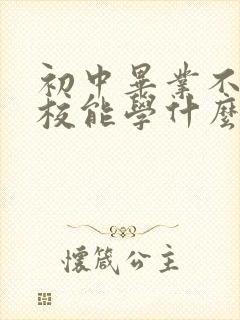 初中畢業不
校能學什麼
懷箴公主